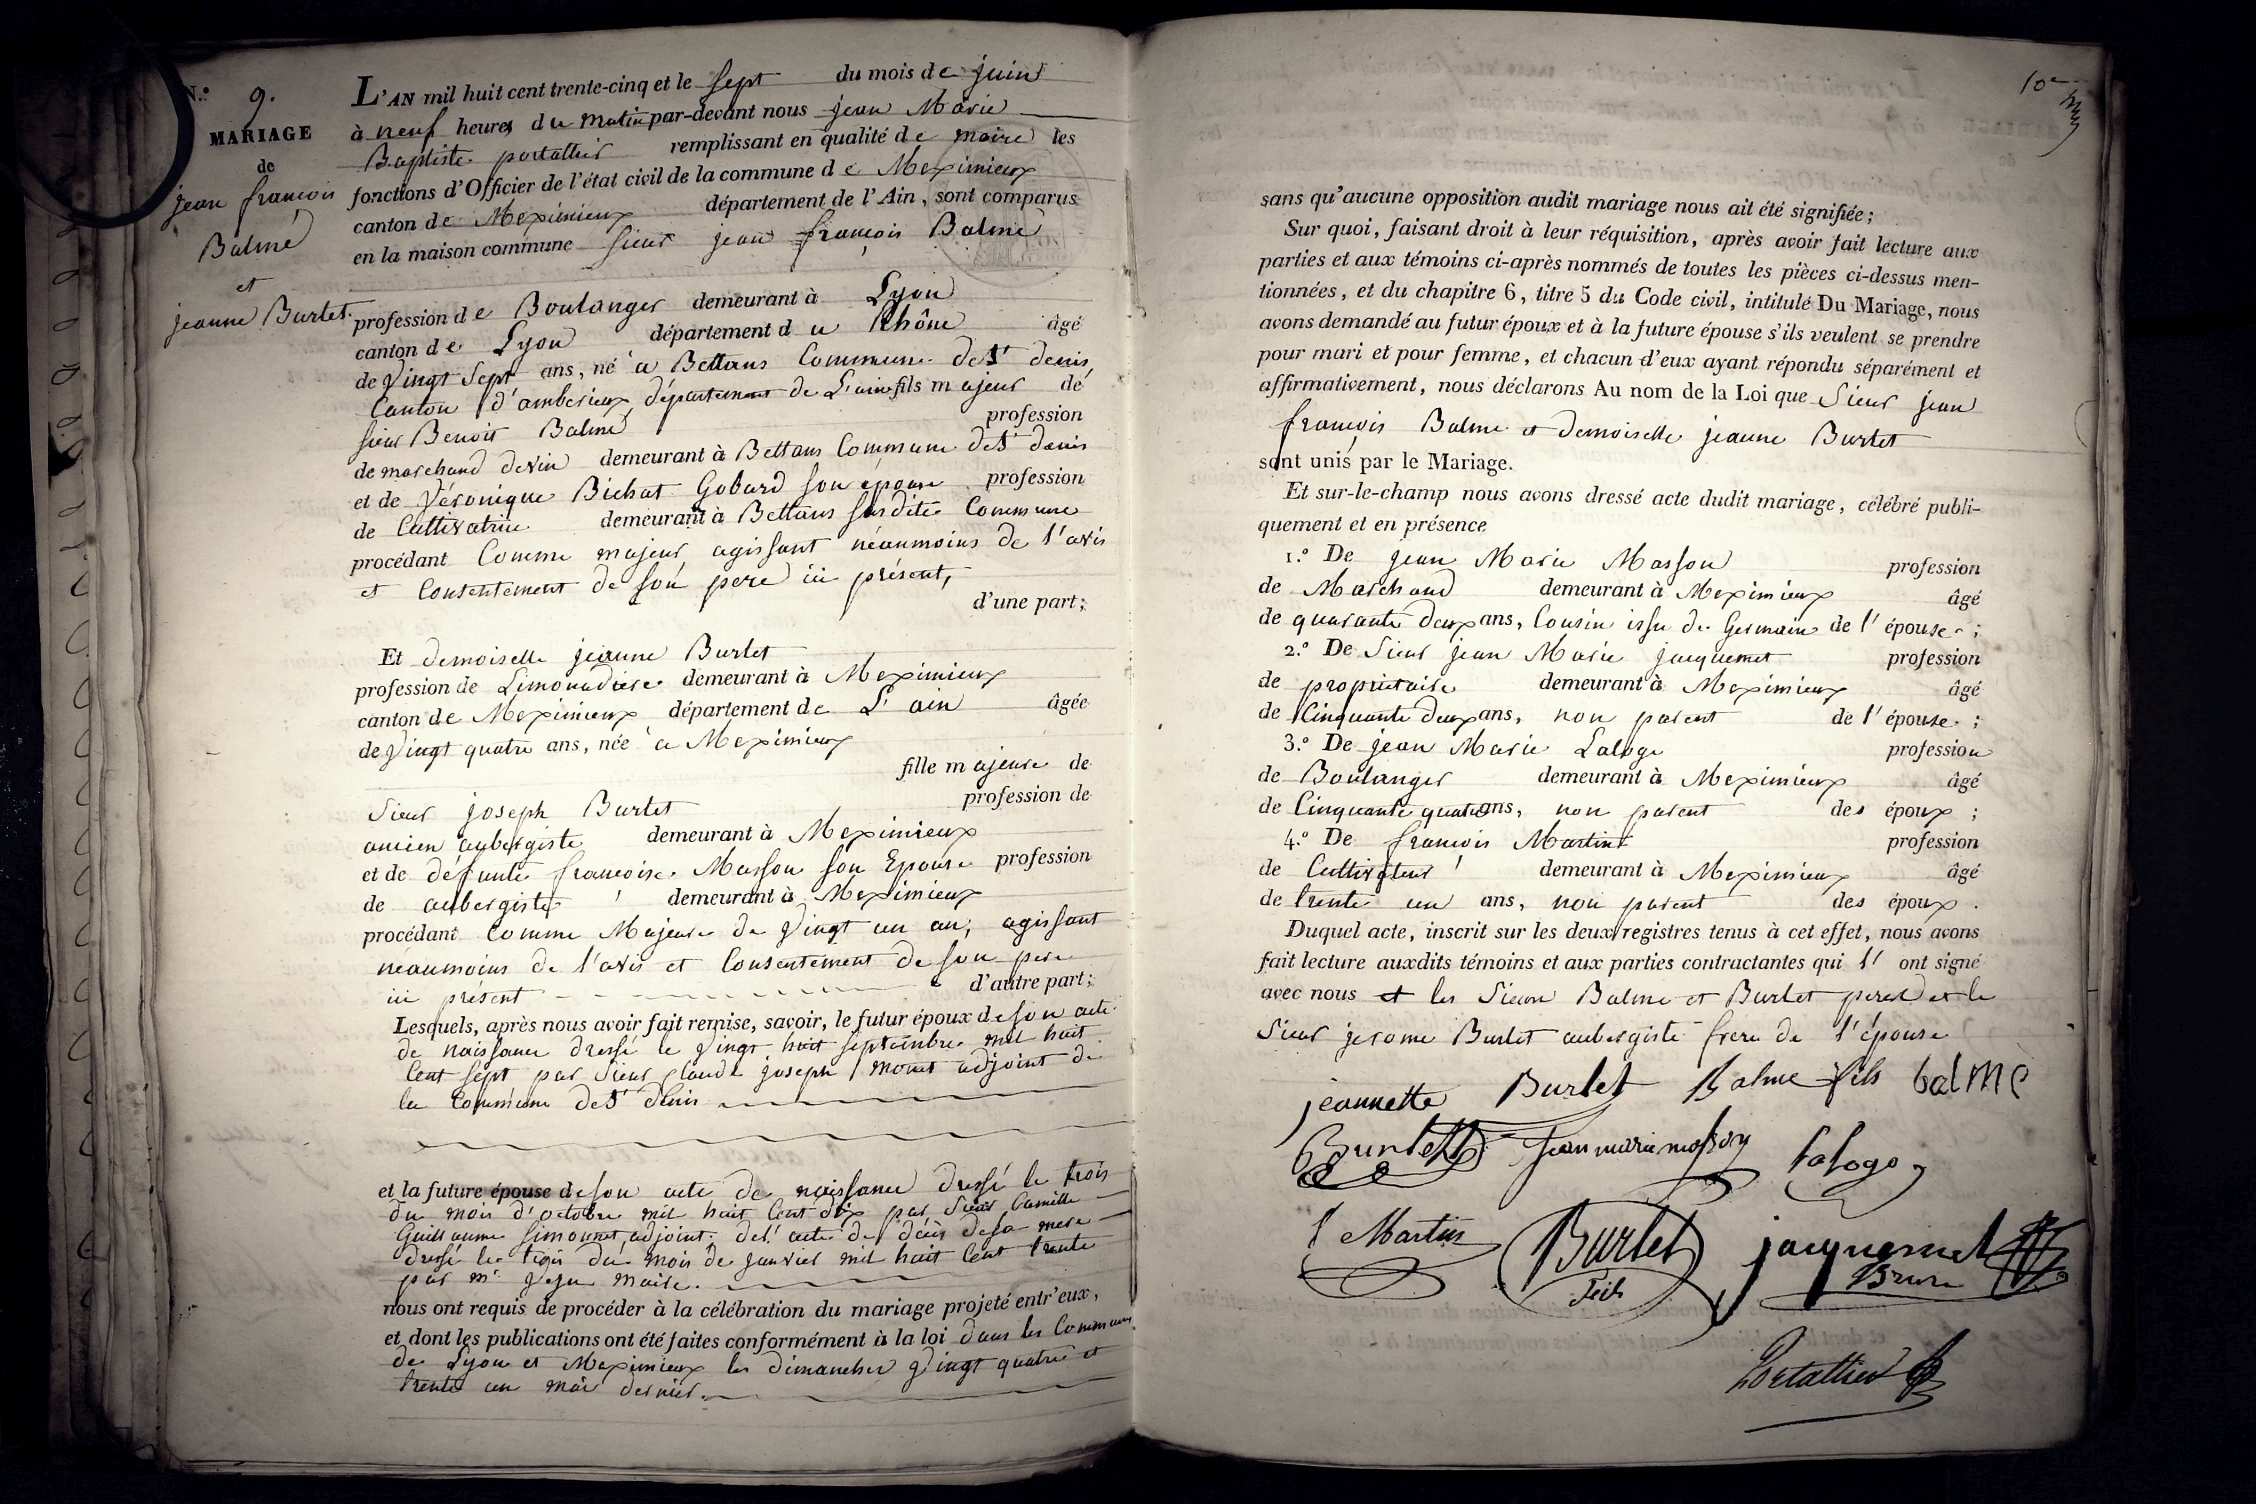 N.º 9.
MARIAGE
de
jean françois
Balme
et
jeanne Burlet.
L'AN mil huit cent trente-cinq et le sept du mois de juin
à neuf heures du matin par-devant nous jean Marie
Baptiste portallier remplissant en qualité de maire les
fonctions d'Officier de l'état civil de la commune de Meximieux
canton de Meximieux département de l'Ain, sont comparus
en la maison commune sieur jean françois Balme
profession de Boulanger demeurant à Lyon
canton de Lyon département du Rhône âgé
de Vingt Sept ans, né à Bettans Commune de St denis
Canton d'amberieux département de L'ain fils majeur de
sieur Benoit Balme profession
de marchand de vin demeurant à Bettans Commune de St denis
et de Véronique Bichat Gobard son épouse profession
de Cultivatrice demeurant à Bettans susdite Commune
procédant Comme majeur agissant néanmoins de l'avis
et Consentement de son pere ici présent,
d'une part;
Et demoiselle jeanne Burlet
profession de Limonadiere demeurant à Meximieux
canton de Meximieux département de L'ain âgée
de Vingt quatre ans, née à Meximieux
fille majeure de
Sieur joseph Burlet profession de
ancien aubergiste demeurant à Meximieux
et de défunte francoise Masson son Epouse profession
de aubergiste demeurant à Meximieux
procédant Comme Majeure de Vingt un an, agissant
néanmoins de l'avis et Consentement de son pere
ici présent d'autre part;
Lesquels, après nous avoir fait remise, savoir, le futur époux de son acte
de naissance dressé le Vingt huit septembre mil huit
Cent sept par Sieur Claude joseph monet adjoint de
la Commune de St denis
et la future épouse de son acte de naissance dressé le trois
du mois d'octobre mil huit Cent dix par Sieur Camille
Guillaume Simonnet, adjoint. de l'acte de décès de sa mere
dressé le trois du mois de janvier mil huit Cent trente
par mr maire.
nous ont requis de procéder à la célébration du mariage projeté entr'eux,
et dont les publications ont été faites conformément à la loi dans les Communes
de Lyon et Meximieux les dimanches Vingt quatre et
trente un mai dernier.
10e
sans qu'aucune opposition audit mariage nous ait été signifiée;
Sur quoi, faisant droit à leur réquisition, après avoir fait lecture aux
parties et aux témoins ci-après nommés de toutes les pièces ci-dessus men-
tionnées, et du chapitre 6, titre 5 du Code civil, intitulé Du Mariage, nous
avons demandé au futur époux et à la future épouse s'ils veulent se prendre
pour mari et pour femme, et chacun d'eux ayant répondu séparément et
affirmativement, nous déclarons Au nom de la Loi que Sieur jean
françois Balme et demoiselle jeanne Burlet
sont unis par le Mariage.
Et sur-le-champ nous avons dressé acte dudit mariage, célébré publi-
quement et en présence
1.º De jean Marie Masson profession
de Marchand demeurant à Meximieux âgé
de quarante deux ans, Cousin issu de Germain de l'épouse;
2.º De Sieur jean Marie jacquemet profession
de propriétaire demeurant à Meximieux âgé
de Cinquante deux ans, non parent de l'épouse;
3.º De jean Marie Laloge profession
de Boulanger demeurant à Meximieux âgé
de Cinquante quatre ans, non parent des époux;
4.º De françois Martin profession
de Cultivateur demeurant à Meximieux âgé
de trente un ans, non parent des époux.
Duquel acte, inscrit sur les deux registres tenus à cet effet, nous avons
fait lecture auxdits témoins et aux parties contractantes qui l' ont signé
avec nous et les Sieurs Balme et Burlet peres et le
Sieur jerome Burlet aubergiste frere de l'épouse
jeannette Burlet Balme fils balme
Burlet jean marie masson laloge
f Martin Burlet fils jacquemet
Brun
Portallier